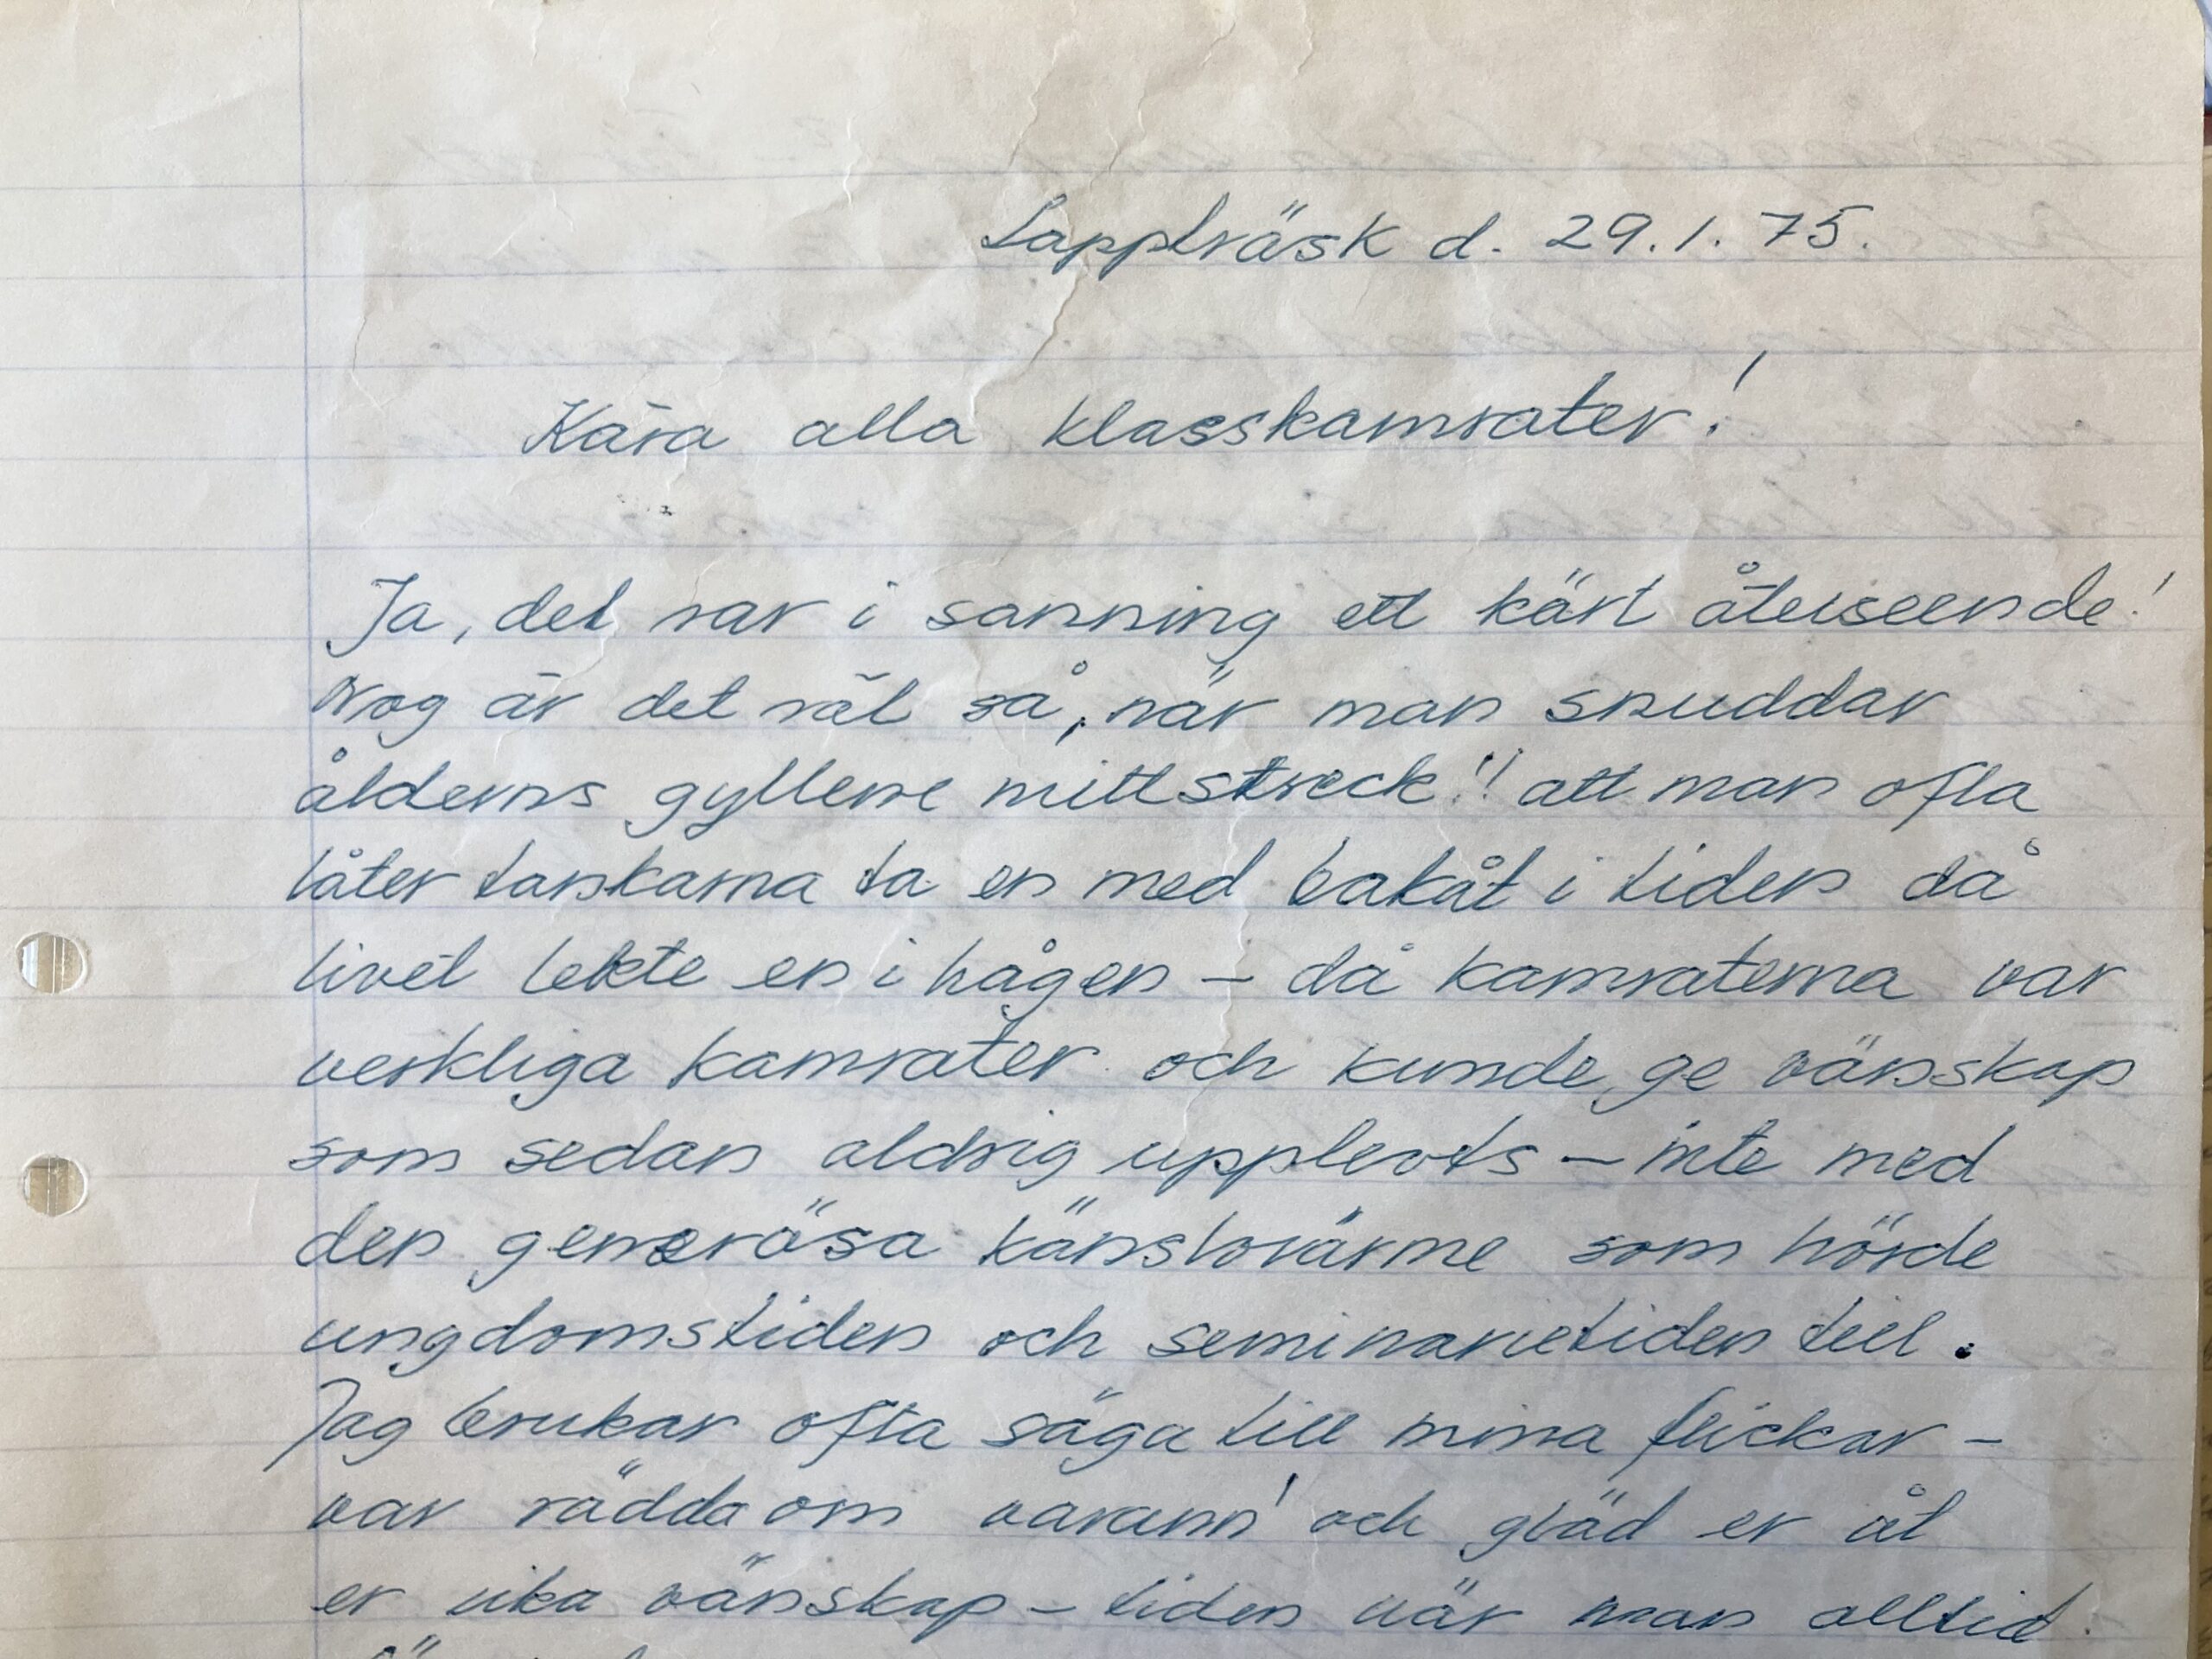 Lappträsk d. 29.1.75.
Kära alla klasskamrater!
Ja, det var i sanning ett kärt återseende!
Nog är det väl så, när man snuddar
ålderns gyllene mittstreck!! att man ofta
låter tankarna ta en med bakåt i tiden då
livet lekte en i hågen – då kamraterna var
verkliga kamrater och kunde ge vänskap
som sedan aldrig upplevts – inte med
den generösa känslovärme som hörde
ungdomstiden och seminarietiden till.
Jag brukar ofta säga till mina flickor –
var rädda om varann' och gläd er åt
er rika vänskap – tiden när man alltid